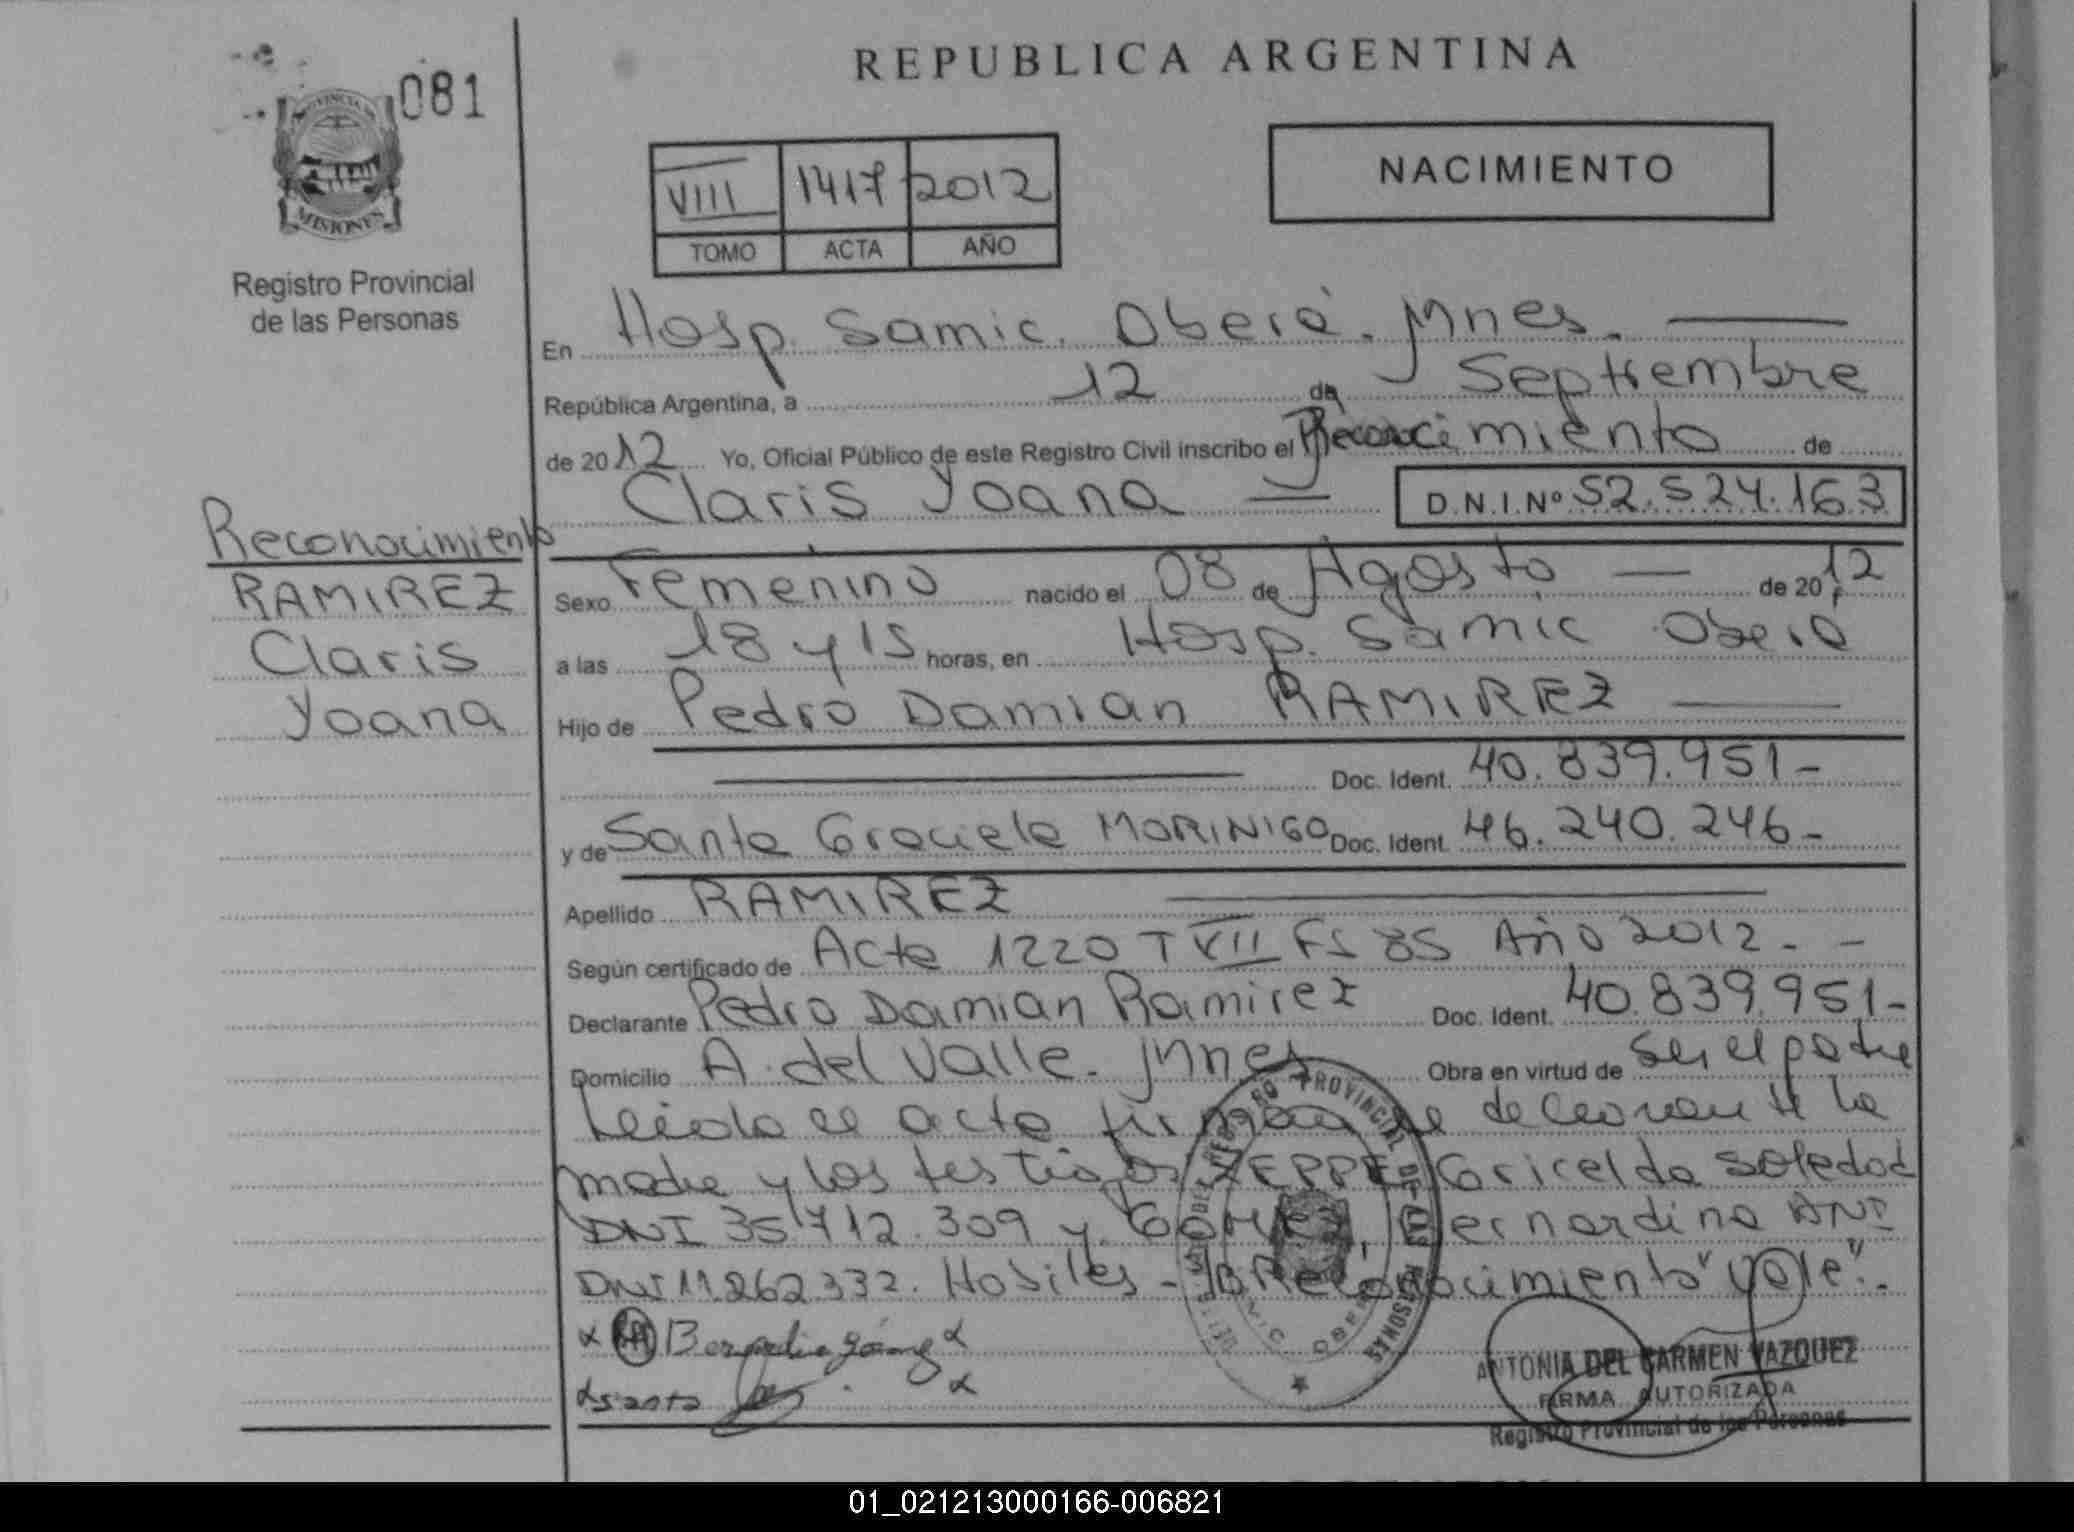 081
PROVINCIA DE
MISIONES
Registro Provincial
de las Personas
REPUBLICA ARGENTINA
VIII 1417 2012
TOMO ACTA AÑO
NACIMIENTO
En Hosp. Samic. Oberá. Mnes.
República Argentina, a 12 de Septiembre
de 2012 Yo, Oficial Público de este Registro Civil inscribo el Reconocimiento de
Claris Yoana D.N.I.Nº 52.524.163
Reconocimiento
RAMIREZ
Claris
Yoana
Sexo Femenino nacido el 08 de Agosto de 2012
a las 18 y 15 horas, en Hosp. Samic Oberá
Hijo de Pedro Damian RAMIREZ
Doc. Ident. 40.839.951-
y de Santa Graciela MORINIGO Doc. Ident. 46.240.246-
Apellido RAMIREZ
Según certificado de Acta 1220 T VII Fs 85 Año 2012.-
Declarante Pedro Damian Ramirez Doc. Ident. 40.839.951-
Domicilio A. del Valle. Mnes Obra en virtud de ser el padre
Leida el acta firman el declarante la
madre y los testigos ZEPPE Gricelda Soledad
DNI 35.712.309 y GOMEZ, Bernardino DNI
DNI 11.262.332. Habiles - Reconocimiento "Vale".-
Santa
REGISTRO PROVINCIAL DE LAS PERSONAS
ANTONIA DEL CARMEN VAZQUEZ
FIRMA AUTORIZADA
Registro Provincial de las Personas
01_021213000166-006821